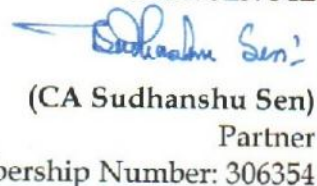 Sudhanshu Sen
(CA Sudhanshu Sen)
Partner
bership Number: 306354